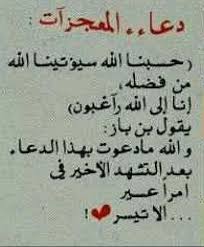 دعاء المعجزات :
(حسبنا الله سيؤتينا الله
من فضله,
إنا إلى الله رآغبون)
يقول بن باز:
و الله مادعوت بهذا الدعاء
بعد التشهد الأخير في
امراً عسير
... الا تيسر ❤ !